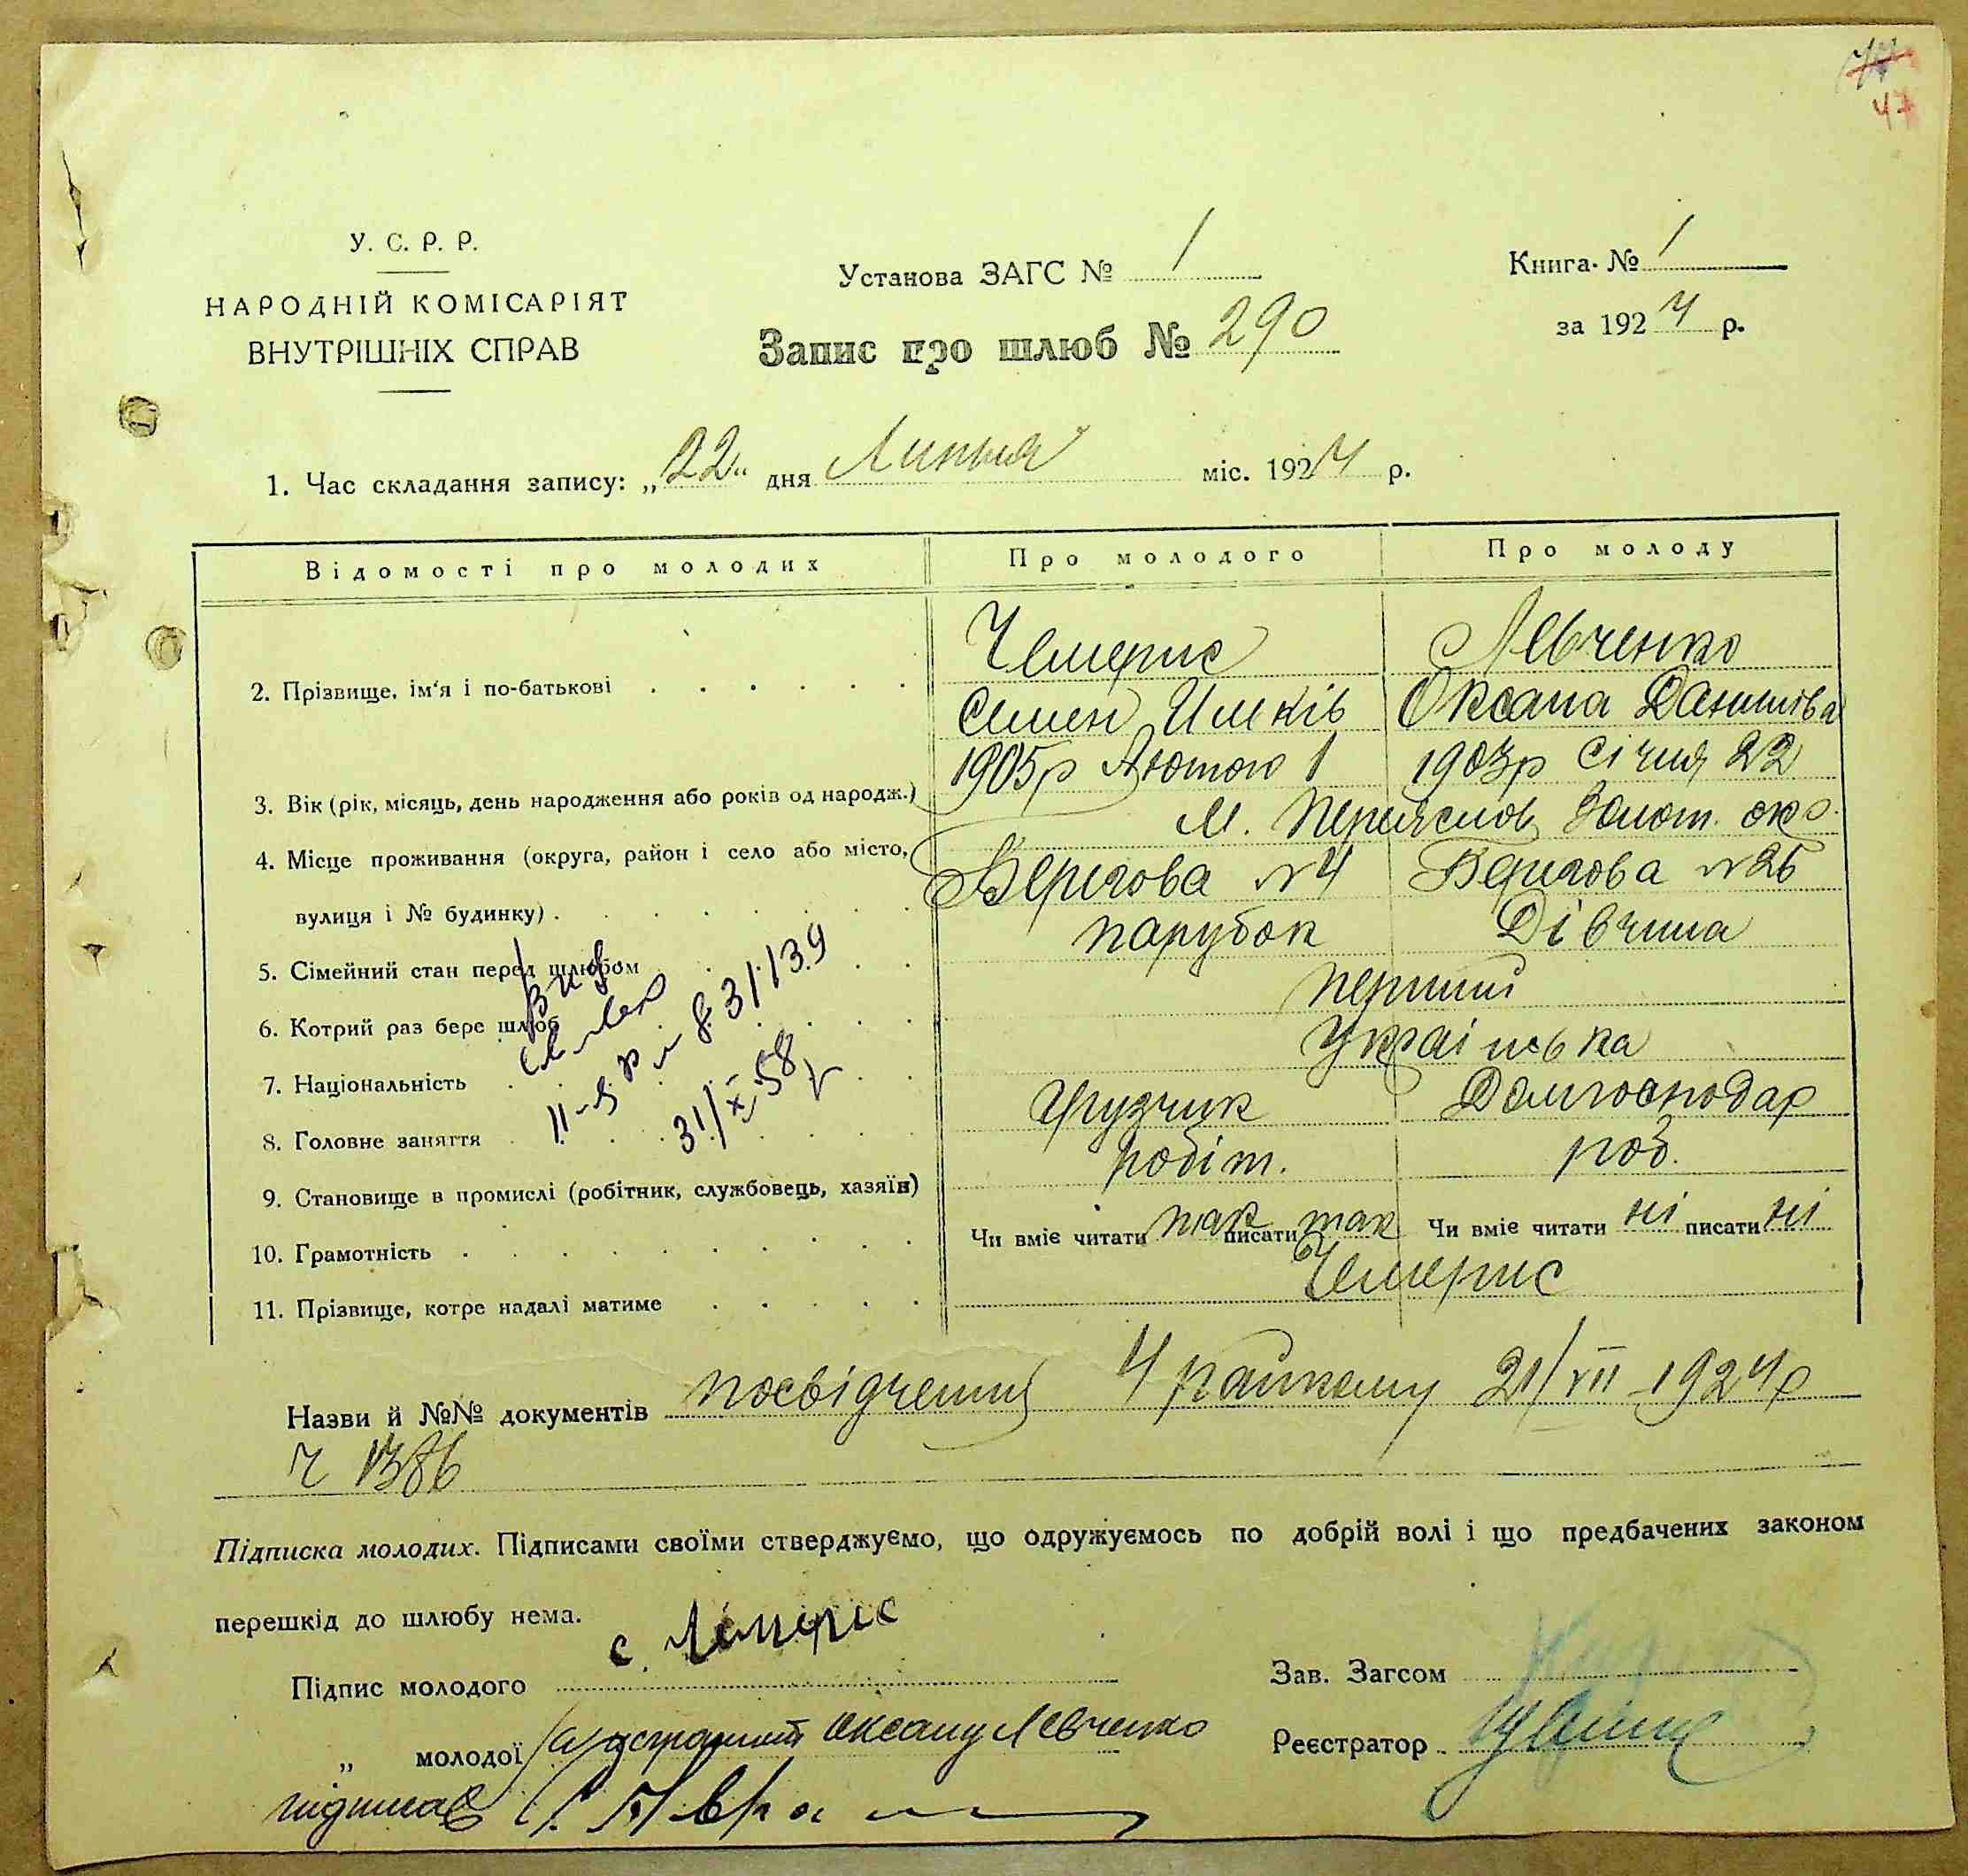 47
У. С. Р. Р.
НАРОДНІЙ КОМІСАРІЯТ
ВНУТРІШНІХ СПРАВ
Установа ЗАГС № 1
Запис про шлюб № 290
Книга № 1
за 1924 р.
1. Час складання запису: „22" дня Липня міс. 1924 р.
Відомості про молодих
Про молодого
Про молоду
2. Прізвище, ім'я і по-батькові
Чемерис
Левченко
Семен
Оксана Данилова
3. Вік (рік, місяць, день народження або років од народж.)
1905р Лютого 1
1903р Січня 22
4. Місце проживання (округа, район і село або місто,
вулиця і № будинку)
М. Переяслов Золот. окр.
Берегова №4
Берегова №26
5. Сімейний стан перед шлюбом
парубок
Дівчина
6. Котрий раз бере шлюб
перший
7. Національність
Українська
8. Головне заняття
Грузчик
Домгосподар
9. Становище в промислі (робітник, службовець, хазяїн)
робіт.
роб.
10. Грамотність
Чи вміє читати так писати так
Чи вміє читати ні писати ні
11. Прізвище, котре надалі матиме
Чемерис
31/X-58
Назви й №№ документів посвідчення 4 райкому 21/VII 1924р
ч 1386
Підписка молодих. Підписами своїми стверджуємо, що одружуємось по добрій волі і що предбачених законом
перешкід до шлюбу нема.
Підпис молодого С. Чемерис
„ молодої Оксану Левченко
підписав
Зав. Загсом
Реєстратор